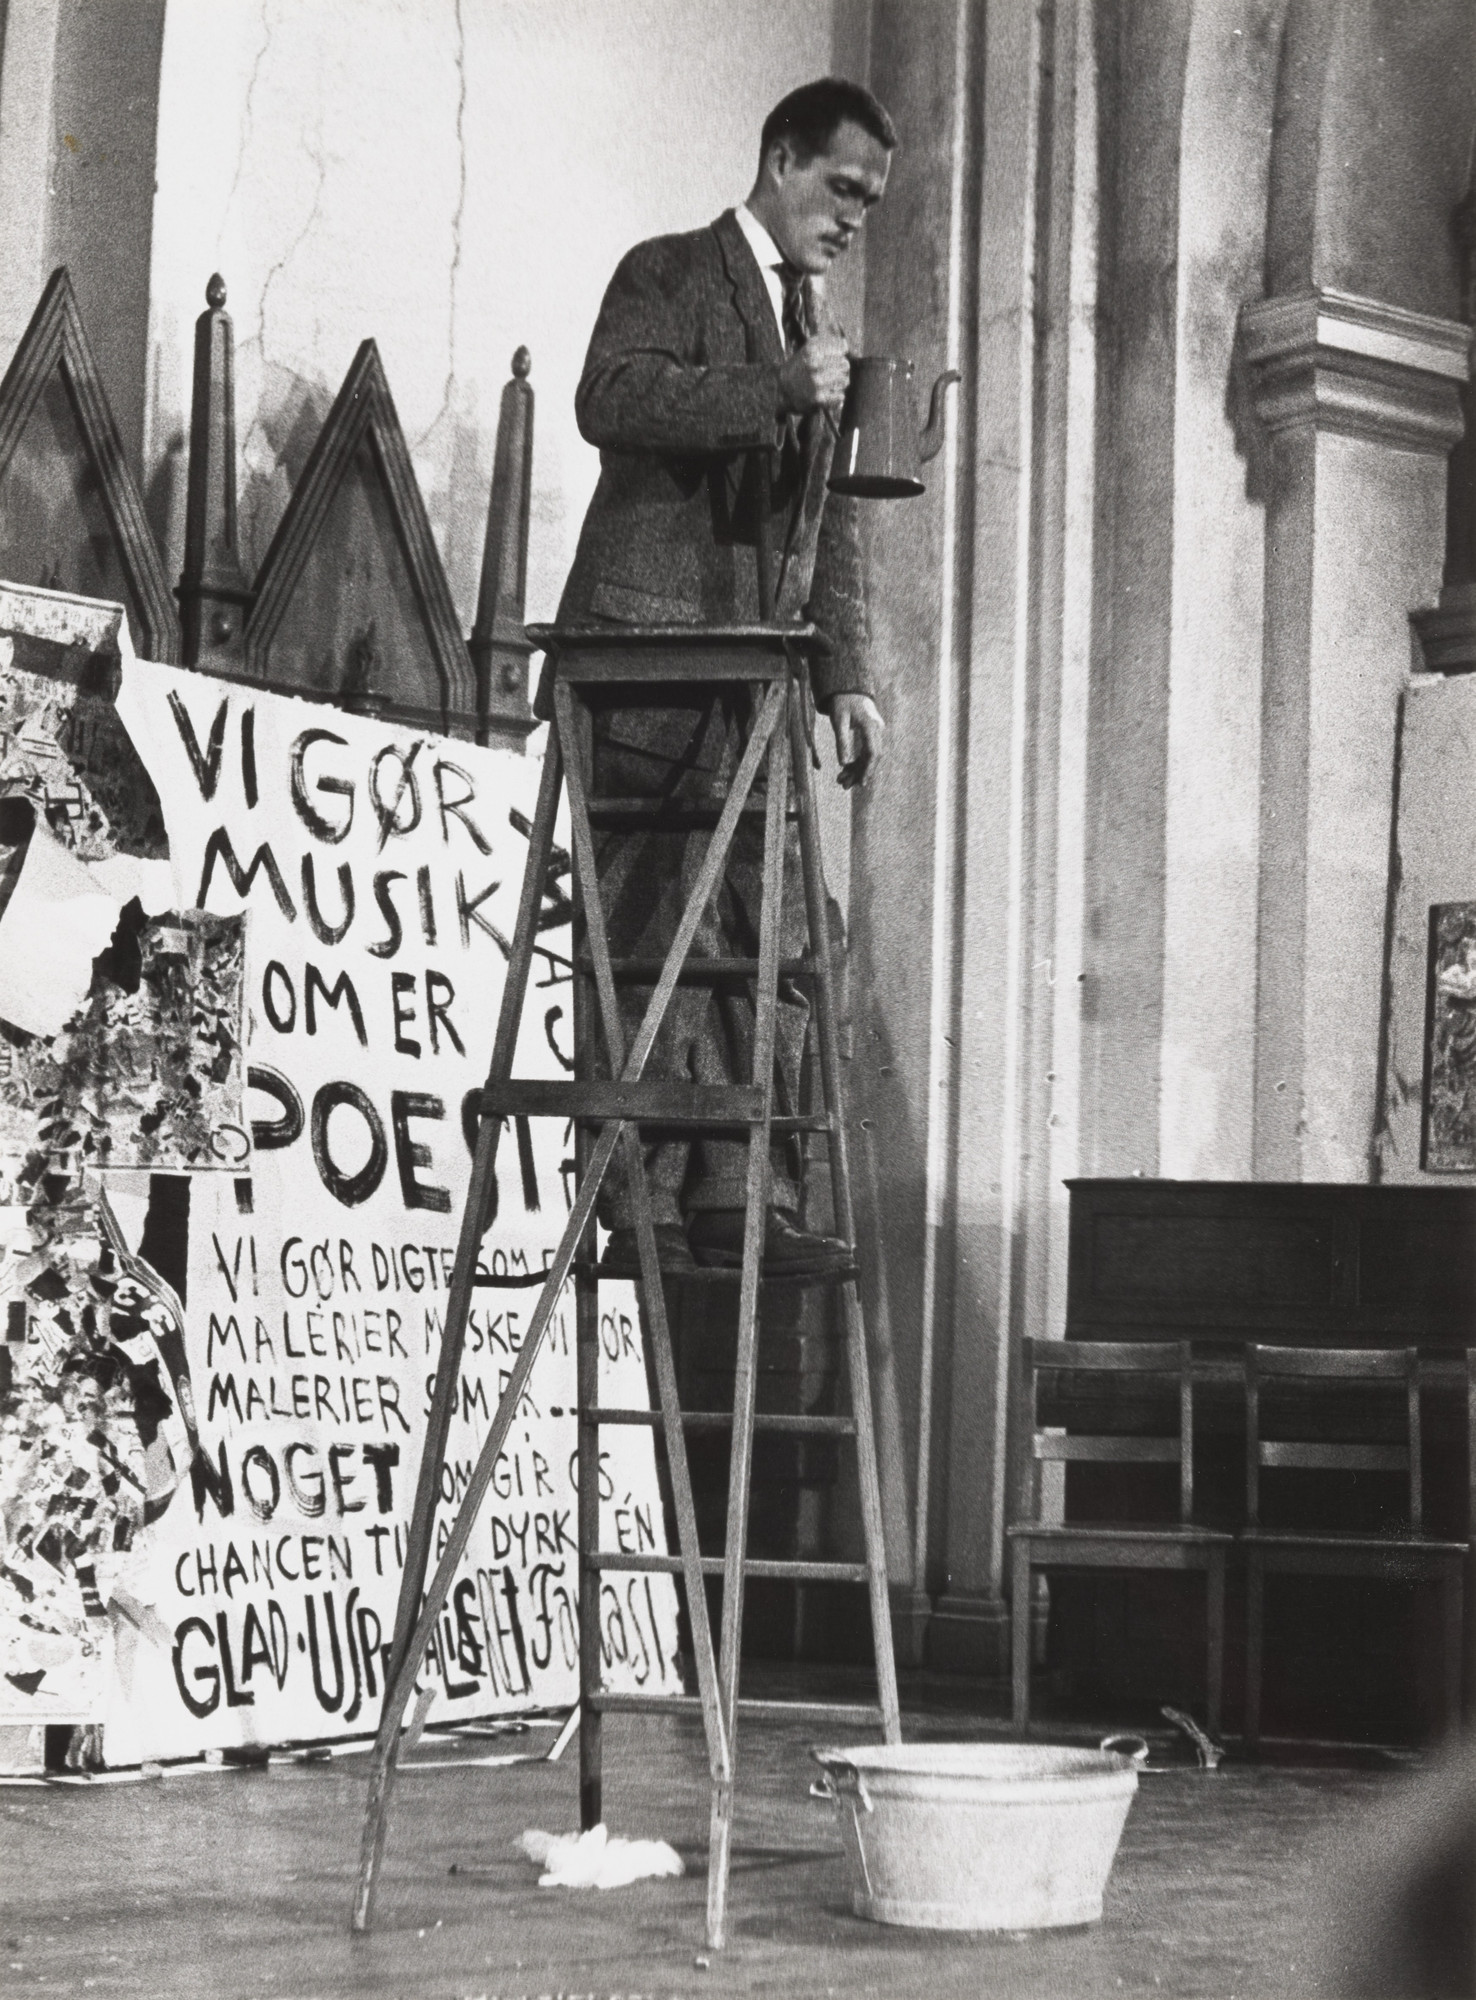 VI GØR
MUSIK
OM ER
POESI
VI GØR DIGTE SOM ER
MALERIER MÅSKE VI GØR
MALERIER SOM ER..
NOGET SOM GIR OS
CHANCEN TIL AT DYRKE ÉN
GLAD·USPECIALISERET FANTASI